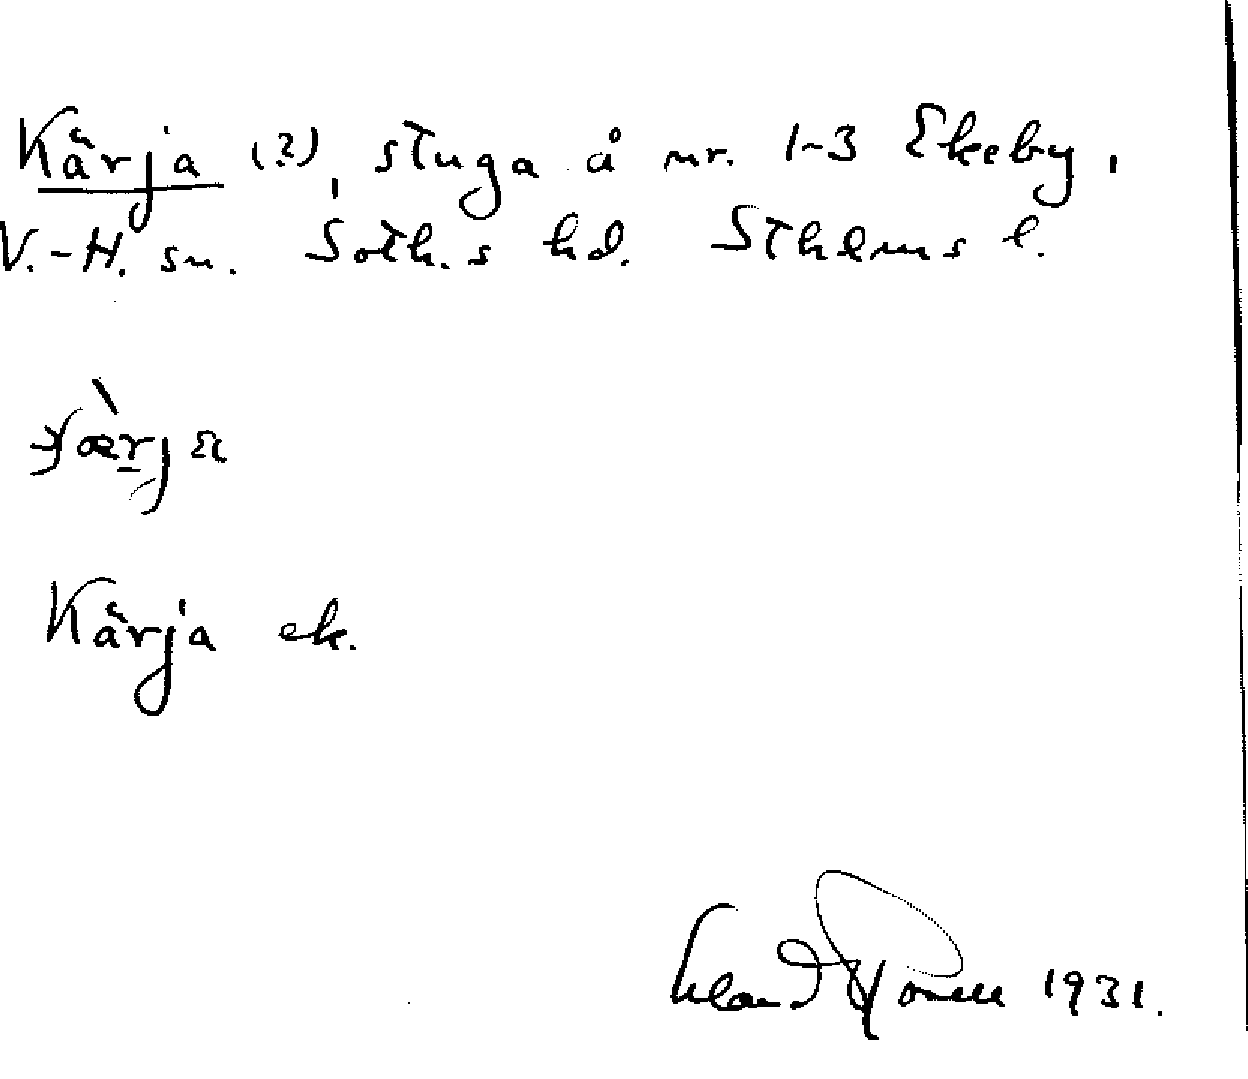 Kärja (?), stuga å nr. 1-3 Ekeby,
V.-H. sn. Soth.s hd. Sthlms l.
Kärja ek.
1931.